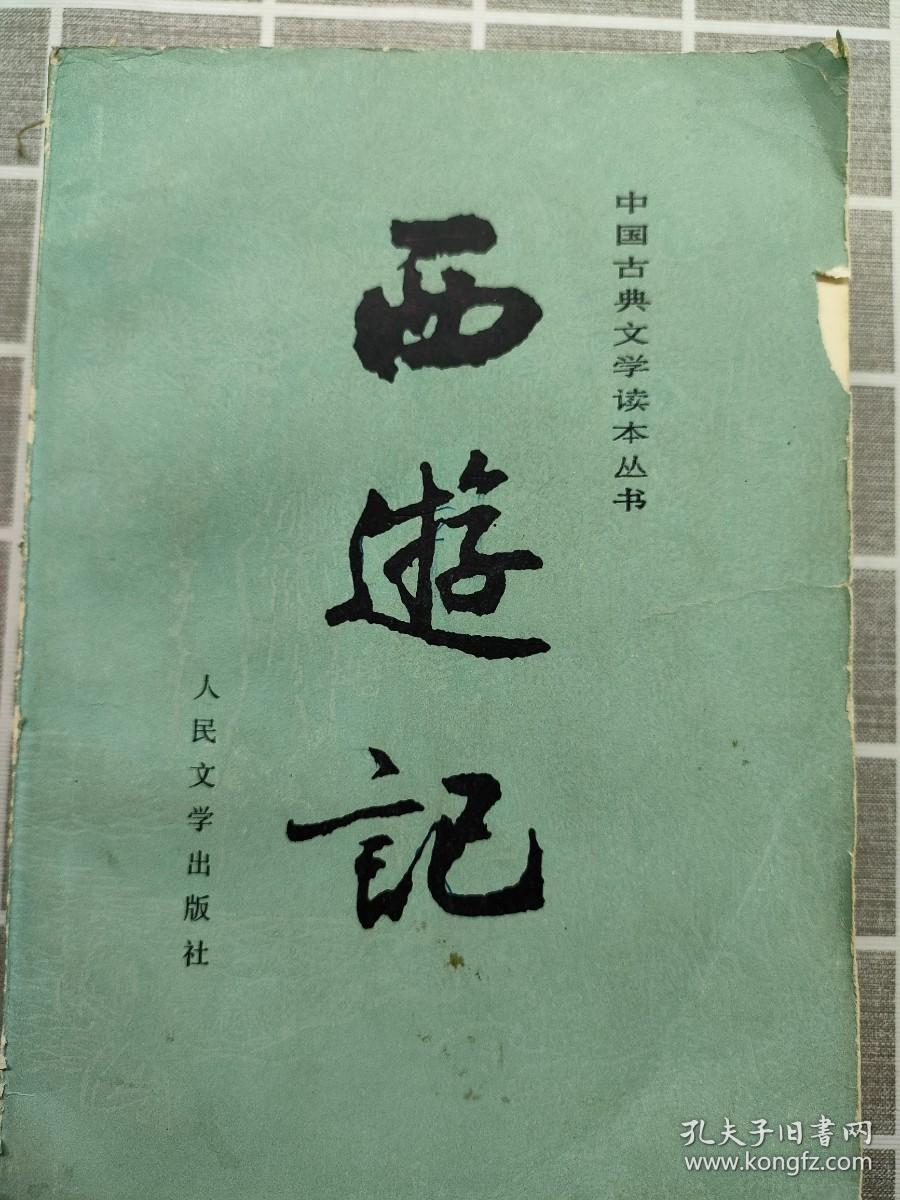 中国古典文学读本丛书
西遊記
人民文学出版社
孔夫子旧書网
www.kongfz.com